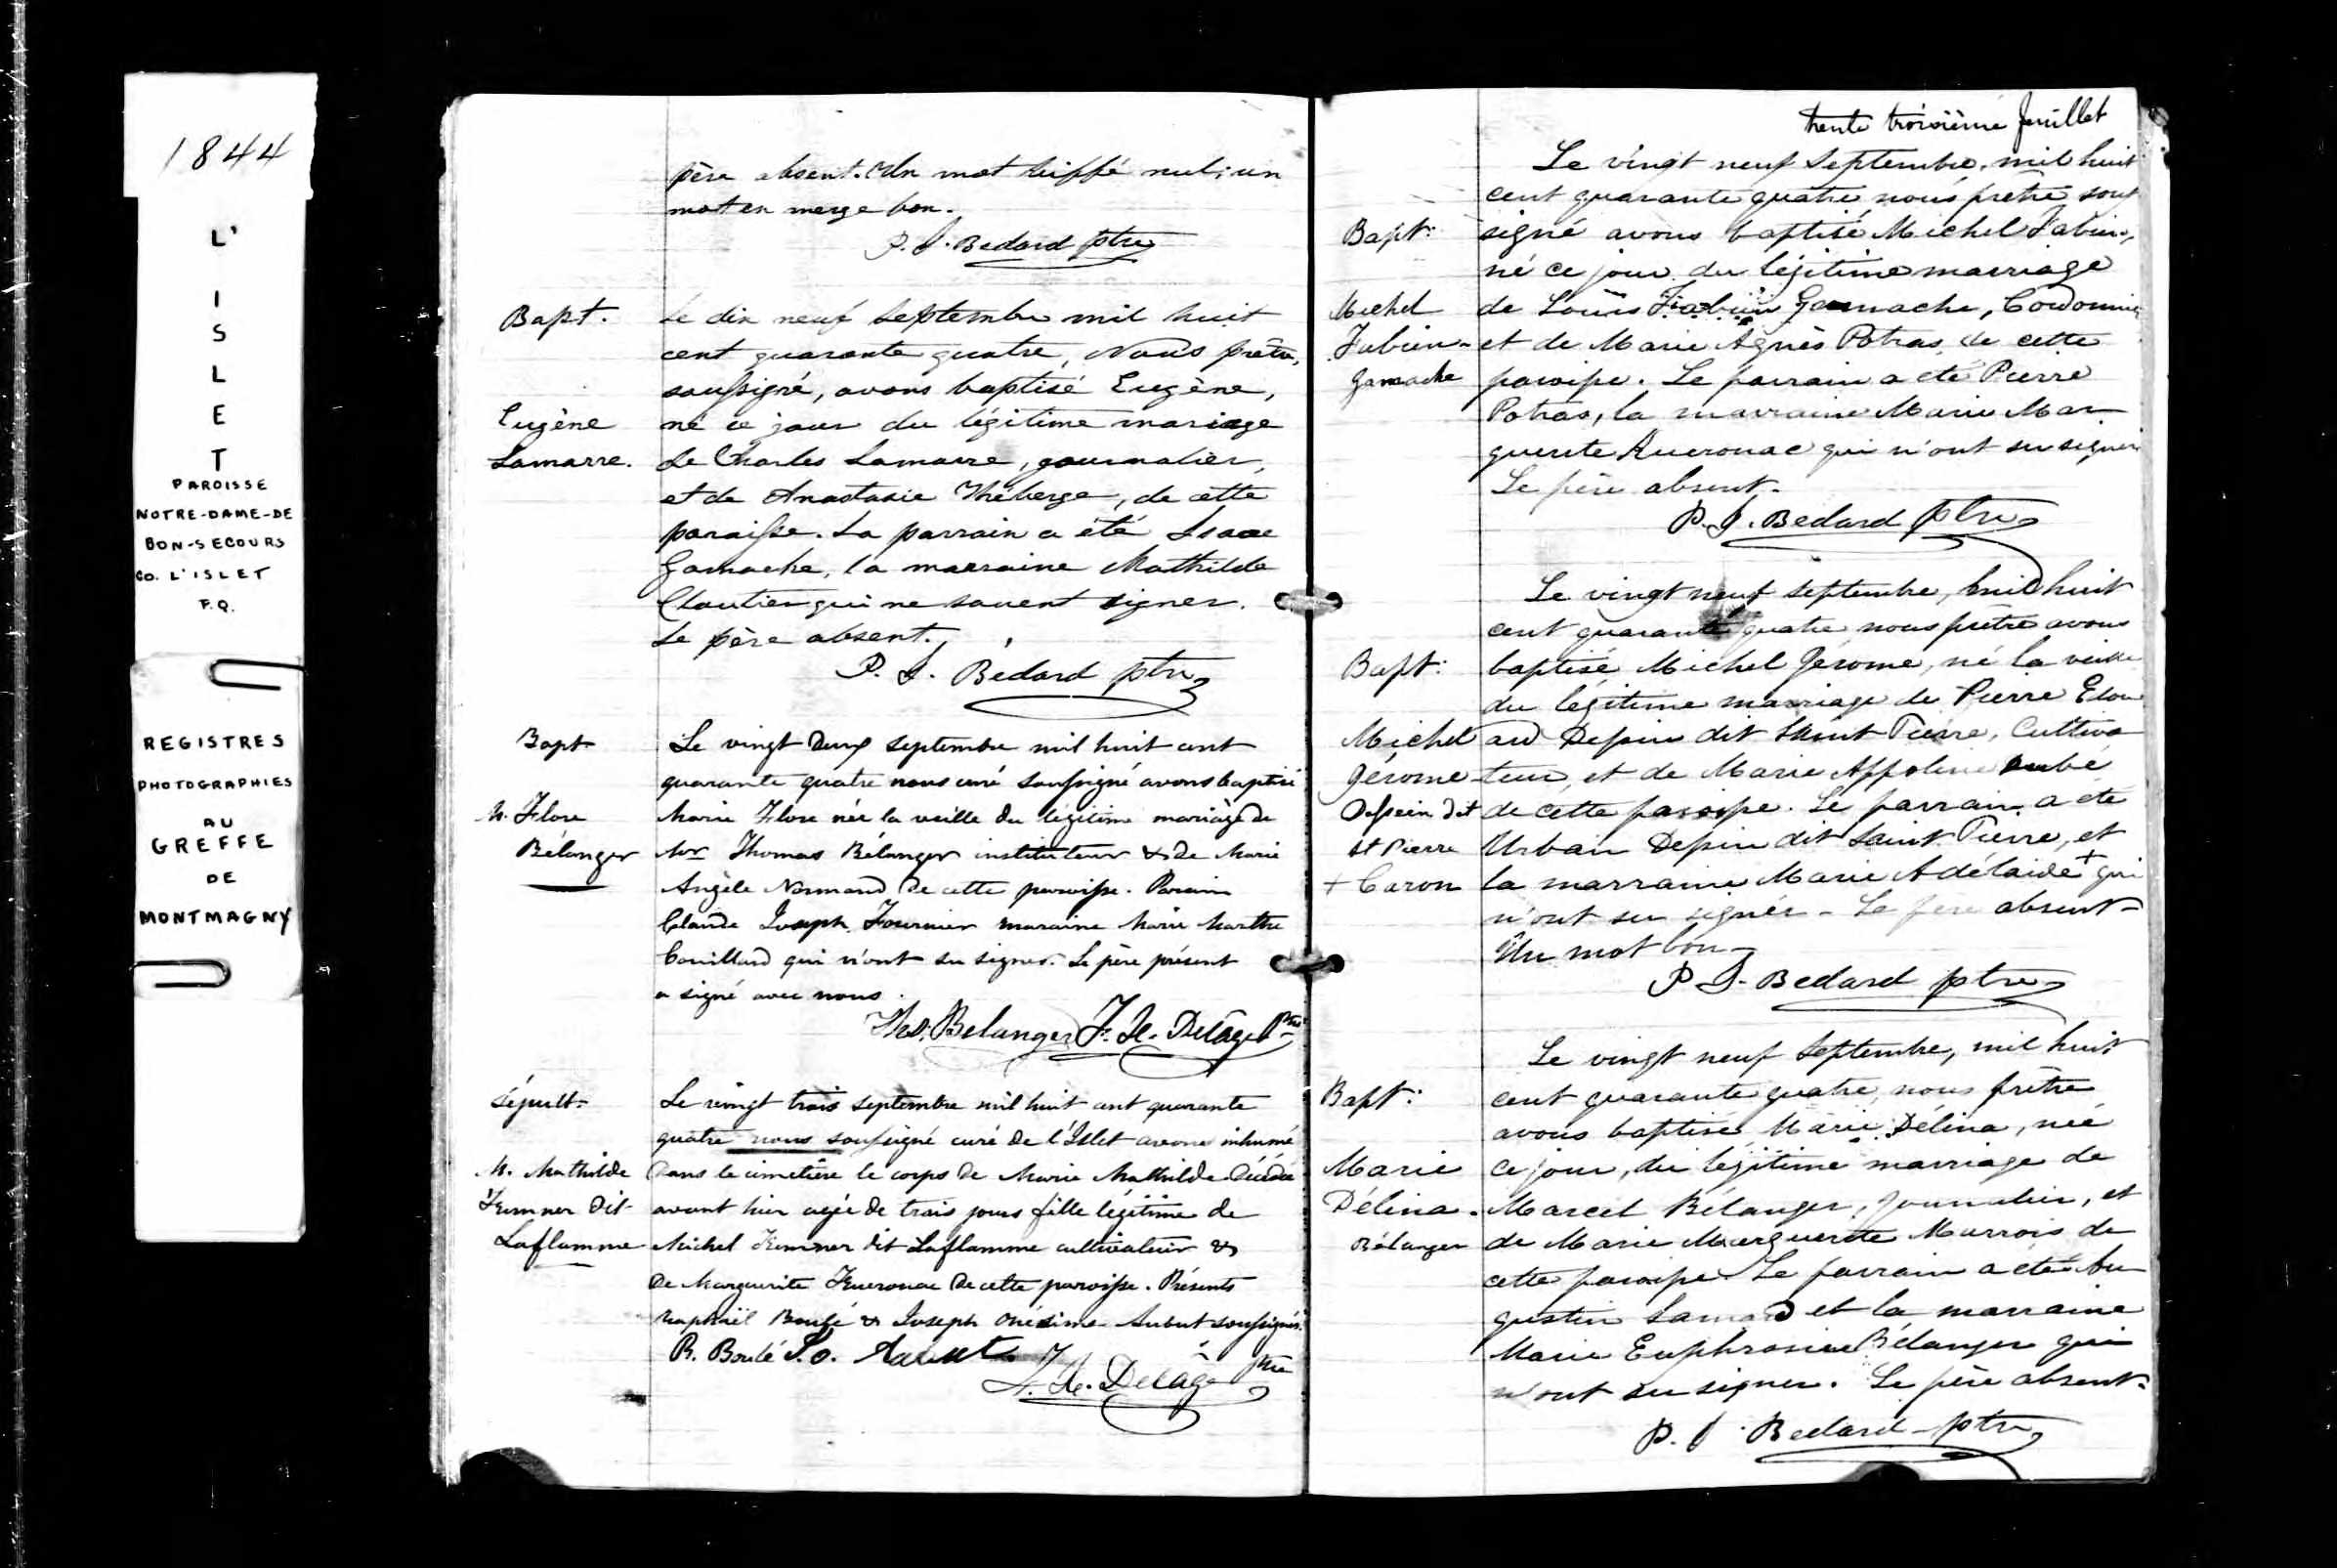 1844
L'
I
S
L
E
T
PAROISSE
NOTRE-DAME-DE
BON-SECOURS
CO. L'ISLET
P.Q.
REGISTRES
PHOTOGRAPHIES
AU
GREFFE
DE
MONTMAGNY
père absent. Un mot biffé nul, un
mot en marge bon.
P. J. Bedard ptre
Bapt.
Eugène
Lamarre.
Le dix neuf Septembre mil huit
cent quarante quatre, Nous prêtre,
soussigné, avons baptisé Eugène,
né ce jour du légitime mariage
de Charles Lamarre, journalier,
et de Anastasie Théberge, de cette
paroisse. Le parrain a été Isaac
Gamache, la marraine Mathilde
Cloutier qui ne savent signer.
Le père absent.
P. J. Bédard ptre
Bapt
M. Flore
Bélanger
Le vingt deux septembre mil huit cent
quarante quatre nous curé soussigné avons baptisé
Marie Flore née la veille du légitime mariage de
Mr Thomas Bélanger instituteur & de Marie
Angèle Normand de cette paroisse. Parain
Claude Joseph Fournier maraine Marie Marthe
Couillard qui n'ont su signer. Le père présent
a signé avec nous.
Ths. Belanger F. X. Delâge Ptre
Sépult.
M. Mathilde
Kemner dit
Laflamme
Le vingt trois septembre mil huit cent quarante
quatre nous soussigné curé de l'Islet avons inhumé
dans le cimetière le corps de Marie Mathilde décédée
avant hier agée de trois jours fille légitime de
Michel Kemner dit Laflamme cultivateur &
de Marguerite Kuerouac de cette paroisse. Présents
Raphaël Boulé & Joseph Onésime Aubut soussignés.
R. Boulé J. O. Aubut
F. X. Delâge Ptre
trente troisième feuillet
Bapt:
Michel
Fabien
Gamache
Le vingt neuf Septembre, mil huit
cent quarante quatre, nous prêtre sous
signé avons baptisé Michel Fabien,
né ce jour du légitime marriage
de Louis Fabien Gamache, Cordonnier
et de Marie Agnès Potras de cette
paroisse. Le parrain a été Pierre
Potras, la marraine Marie Mar
guerite Kuerouac qui n'ont su signer
Le père absent.
P. J. Bedard ptre
Bapt:
Michel
Jérome
Dessein dit
St Pierre
+ Caron
Le vingt neuf septembre, mil huit
cent quarante quatre nous prêtre avons
baptisé Michel Jérome, né la veille
du légitime marriage de Pierre Edou
ard Dessein dit Saint Pierre, Cultiva
teur, et de Marie Appoline Aubé
de cette paroisse. Le parrain a été
Urbain Dessein dit Saint Pierre, et
la marraine Marie Adélaïde + qui
n'ont su signer - Le père absent -
Un mot bon -
P. J. Bedard ptre
Bapt:
Marie
Délina
Bélanger
Le vingt neuf Septembre, mil huit
cent quarante quatre, nous prêtre
avons baptisé Marie Délina, née
ce jour, du légitime marriage de
Marcel Bélanger, journalier, et
de Marie Marguerite Marrois de
cette paroisse. Le parrain a été Au
gustin et la marraine
Marie Euphrosine Bélanger qui
n'ont su signer. Le père absent.
P. J. Bedard ptre